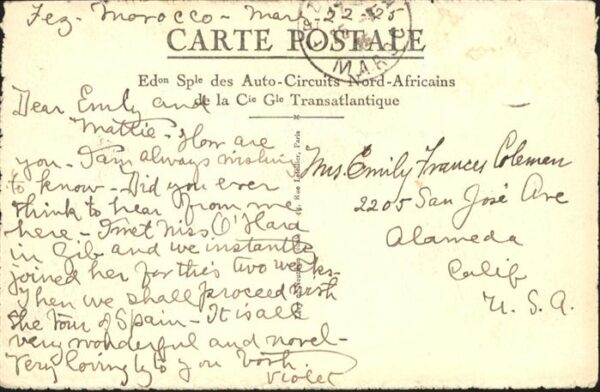 Fez - Morocco - Mar 22 - 25
CARTE POSTALE
MAROC
Edon Sple des Auto-Circuits Nord-Africains
de la Cie Gle Transatlantique
Dear Emily and
Mattie - How are
you - I am always wishing
to know - Did you ever
think to hear from me
here - I met Miss O'Hara
in Gib and we instantly
joined her for this two weeks -
Then we shall proceed with
the tour of Spain - It is all
very wonderful and novel -
Very lovingly to you both
Violet
Mrs. Emily Frances Coleman
2205 San José Ave
Alameda
Calif
U. S. A.
Paris